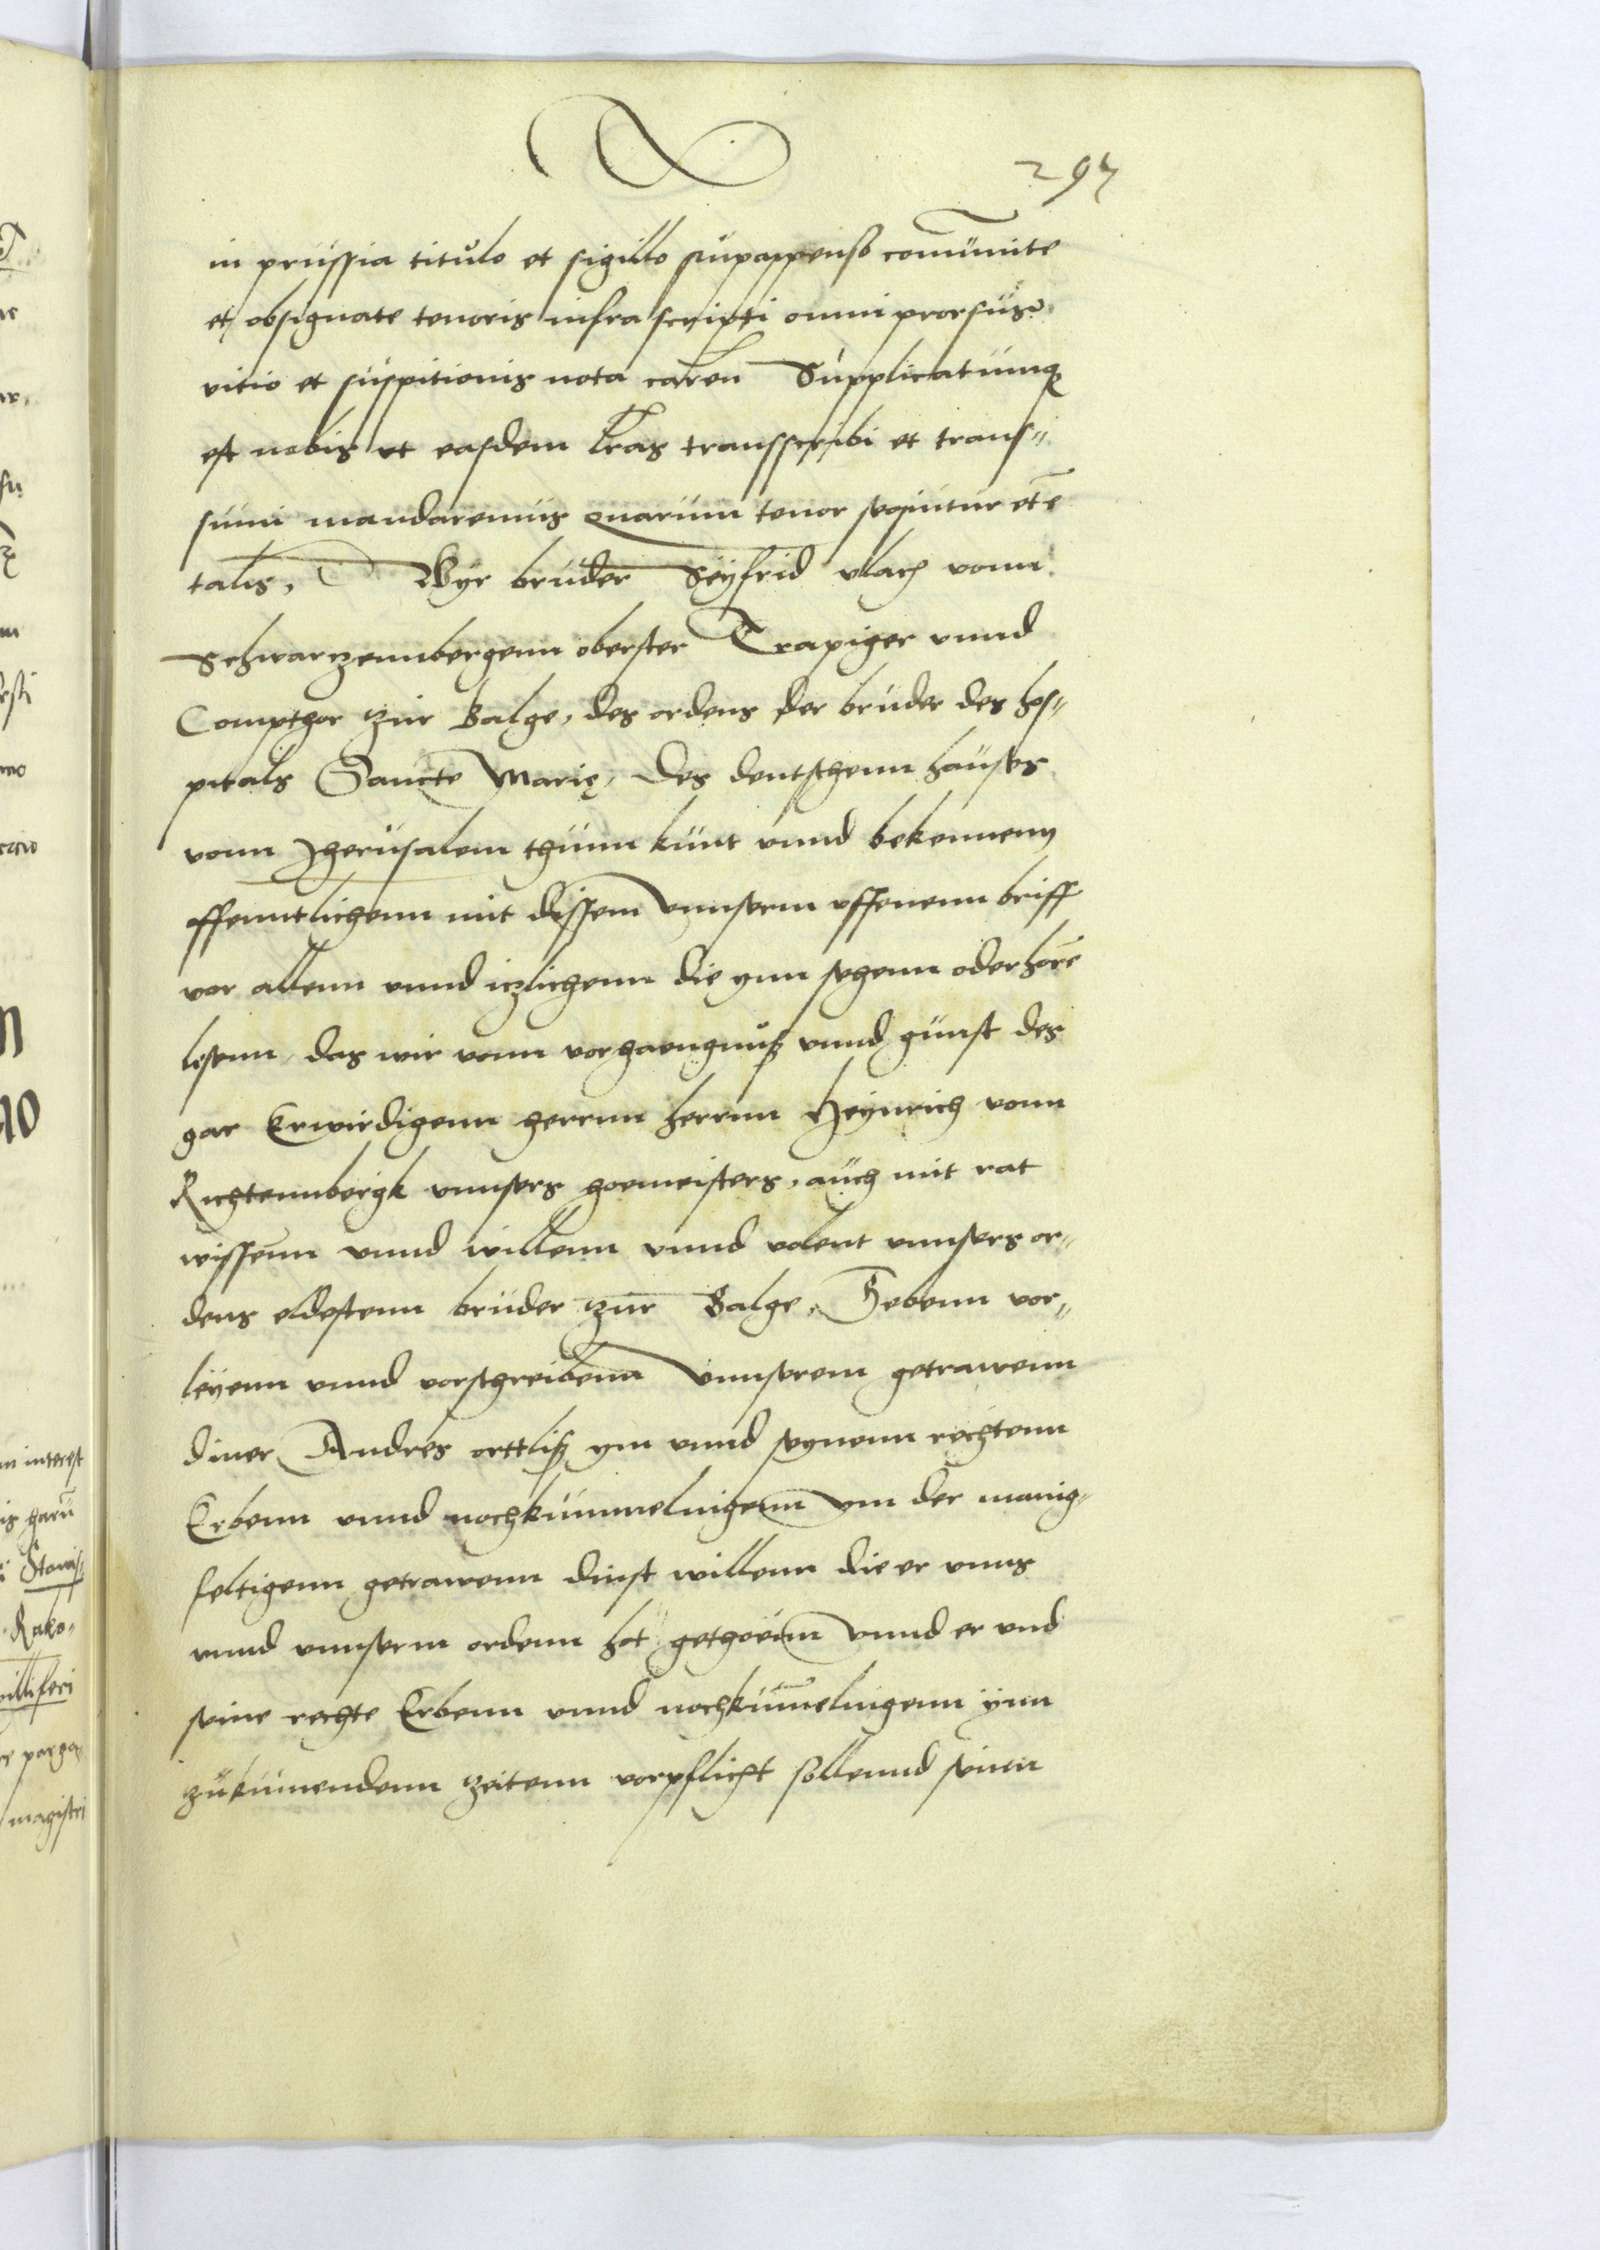 297
in prussia titulo et sigillo supappenso comunite
et obsignate tenoris infra scripti omni prorsus
vitio et suspitionis nota caren Supplicatumq
est nobis vt easdem lras transscribi et trans-
sumi mandaremus quarum tenor sequitur et e
talis, Wyr bruder Seyfrid vlach vonn
Schwartzennbergenn oberster Trapiger vnnd
Compthor zur Balge, des ordens der bruder des hos-
pitals Sancte Marie, des deutschenn hauses
vonn Jherusalem thunn kunt vnnd bekennenn
offenntlichenn mit dissem vnnserm offenenn briff
vor allenn vnnd iczlichenn die ynn sehenn oder hore
lesenn, das wir vonn vorhaengnus vnnd gunst des
gar Erwirdigenn herrnn herrnn Heynrich vonn
Richtennbergk vnnsers hoemeisters, auch mit rat
wissenn vnnd willenn vnnd volent vnnsers or-
dens eldestenn bruder zur Balge, Gebenn vor-
leyenn vnnd vorschreibenn vnnserem getrawenn
diner Andres orttlisz ym vnnd seynenn rechtenn
Erbenn vnnd nochkummelnigenn vm der manig-
feltigenn getrawenn dinst willenn die er vnns
vnnd vnnserm ordenn hot gethoenn vnnd er vnd
seine rechte Erbenn vnnd nochkummelnigenn ynn
zukumendenn zeitenn vorpflicht sollennd seinen
in interest
is haru
Stanis-
Rako-
villiferi
magistri